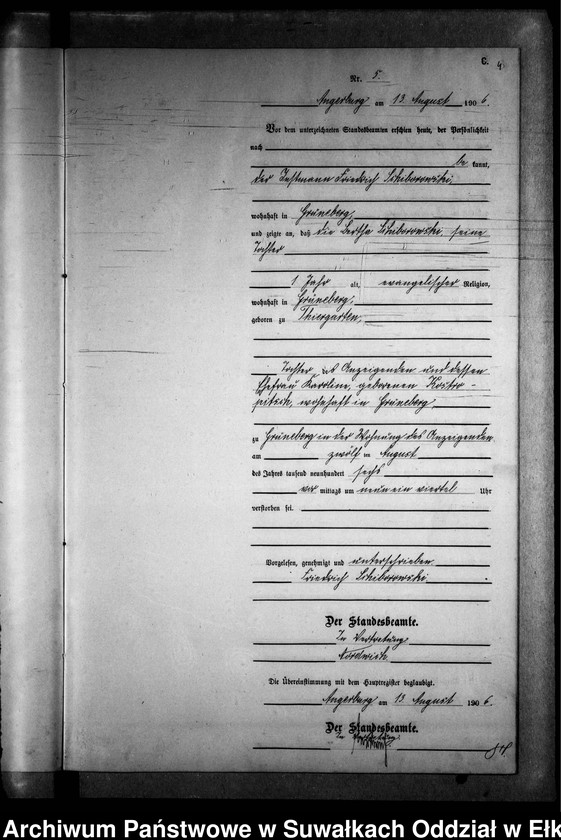 C. 4
Nr. 5.
Angerburg am 13. August 1906.
Vor dem unterzeichneten Standesbeamten erschien heute, der Persönlichkeit
nach
be kannt,
der Instmann Friedrich Schiborowski,
wohnhaft in Grüneberg,
und zeigte an, daß die Bertha Schiborowski, seine
Tochter
1 Jahr alt, evangelischer Religion,
wohnhaft in Grüneberg,
geboren zu Thiergarten,
Tochter des Anzeigenden und dessen
Ehefrau Karoline, geborenen Kostro-
pitsch, wohnhaft in Grüneberg
zu Grüneberg in der Wohnung des Anzeigenden
am zwölf ten August
des Jahres tausend neunhundert sechs
vor mittags um neun ein viertel Uhr
verstorben sei.
Vorgelesen, genehmigt und unterschrieben
Friedrich Schiborowski
Der Standesbeamte.
In Vertretung
Die Übereinstimmung mit dem Hauptregister beglaubigt.
Angerburg am 13. August 1906.
Der Standesbeamte.
In Vertretung
Archiwum Państwowe w Suwałkach Oddział w Ełk